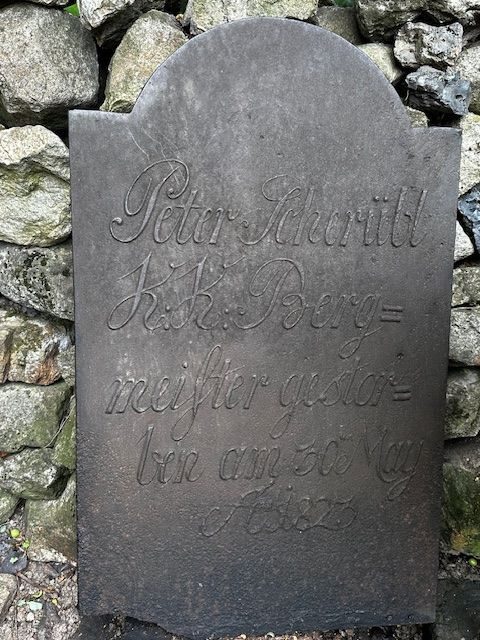 Peter Scherübl
K: K: Berg=
meiſter geſtor=
ben am 30ᵗᵉⁿ May
Aº 1823